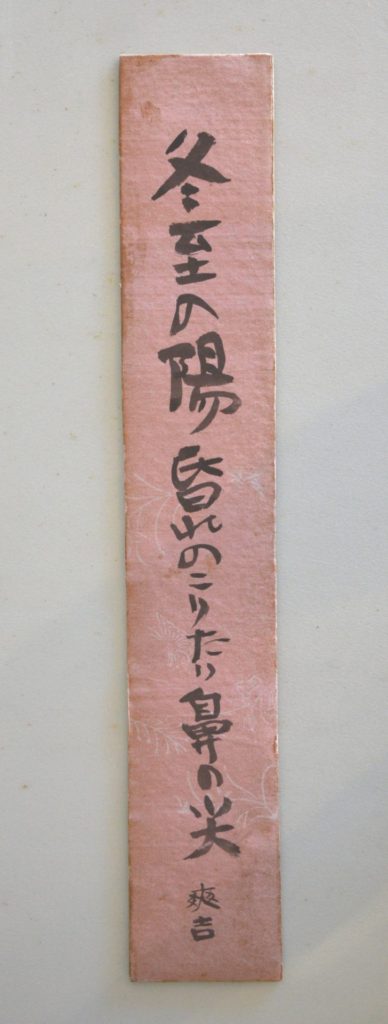 冬至の陽昏れのこりたり鼻の尖
爽吉